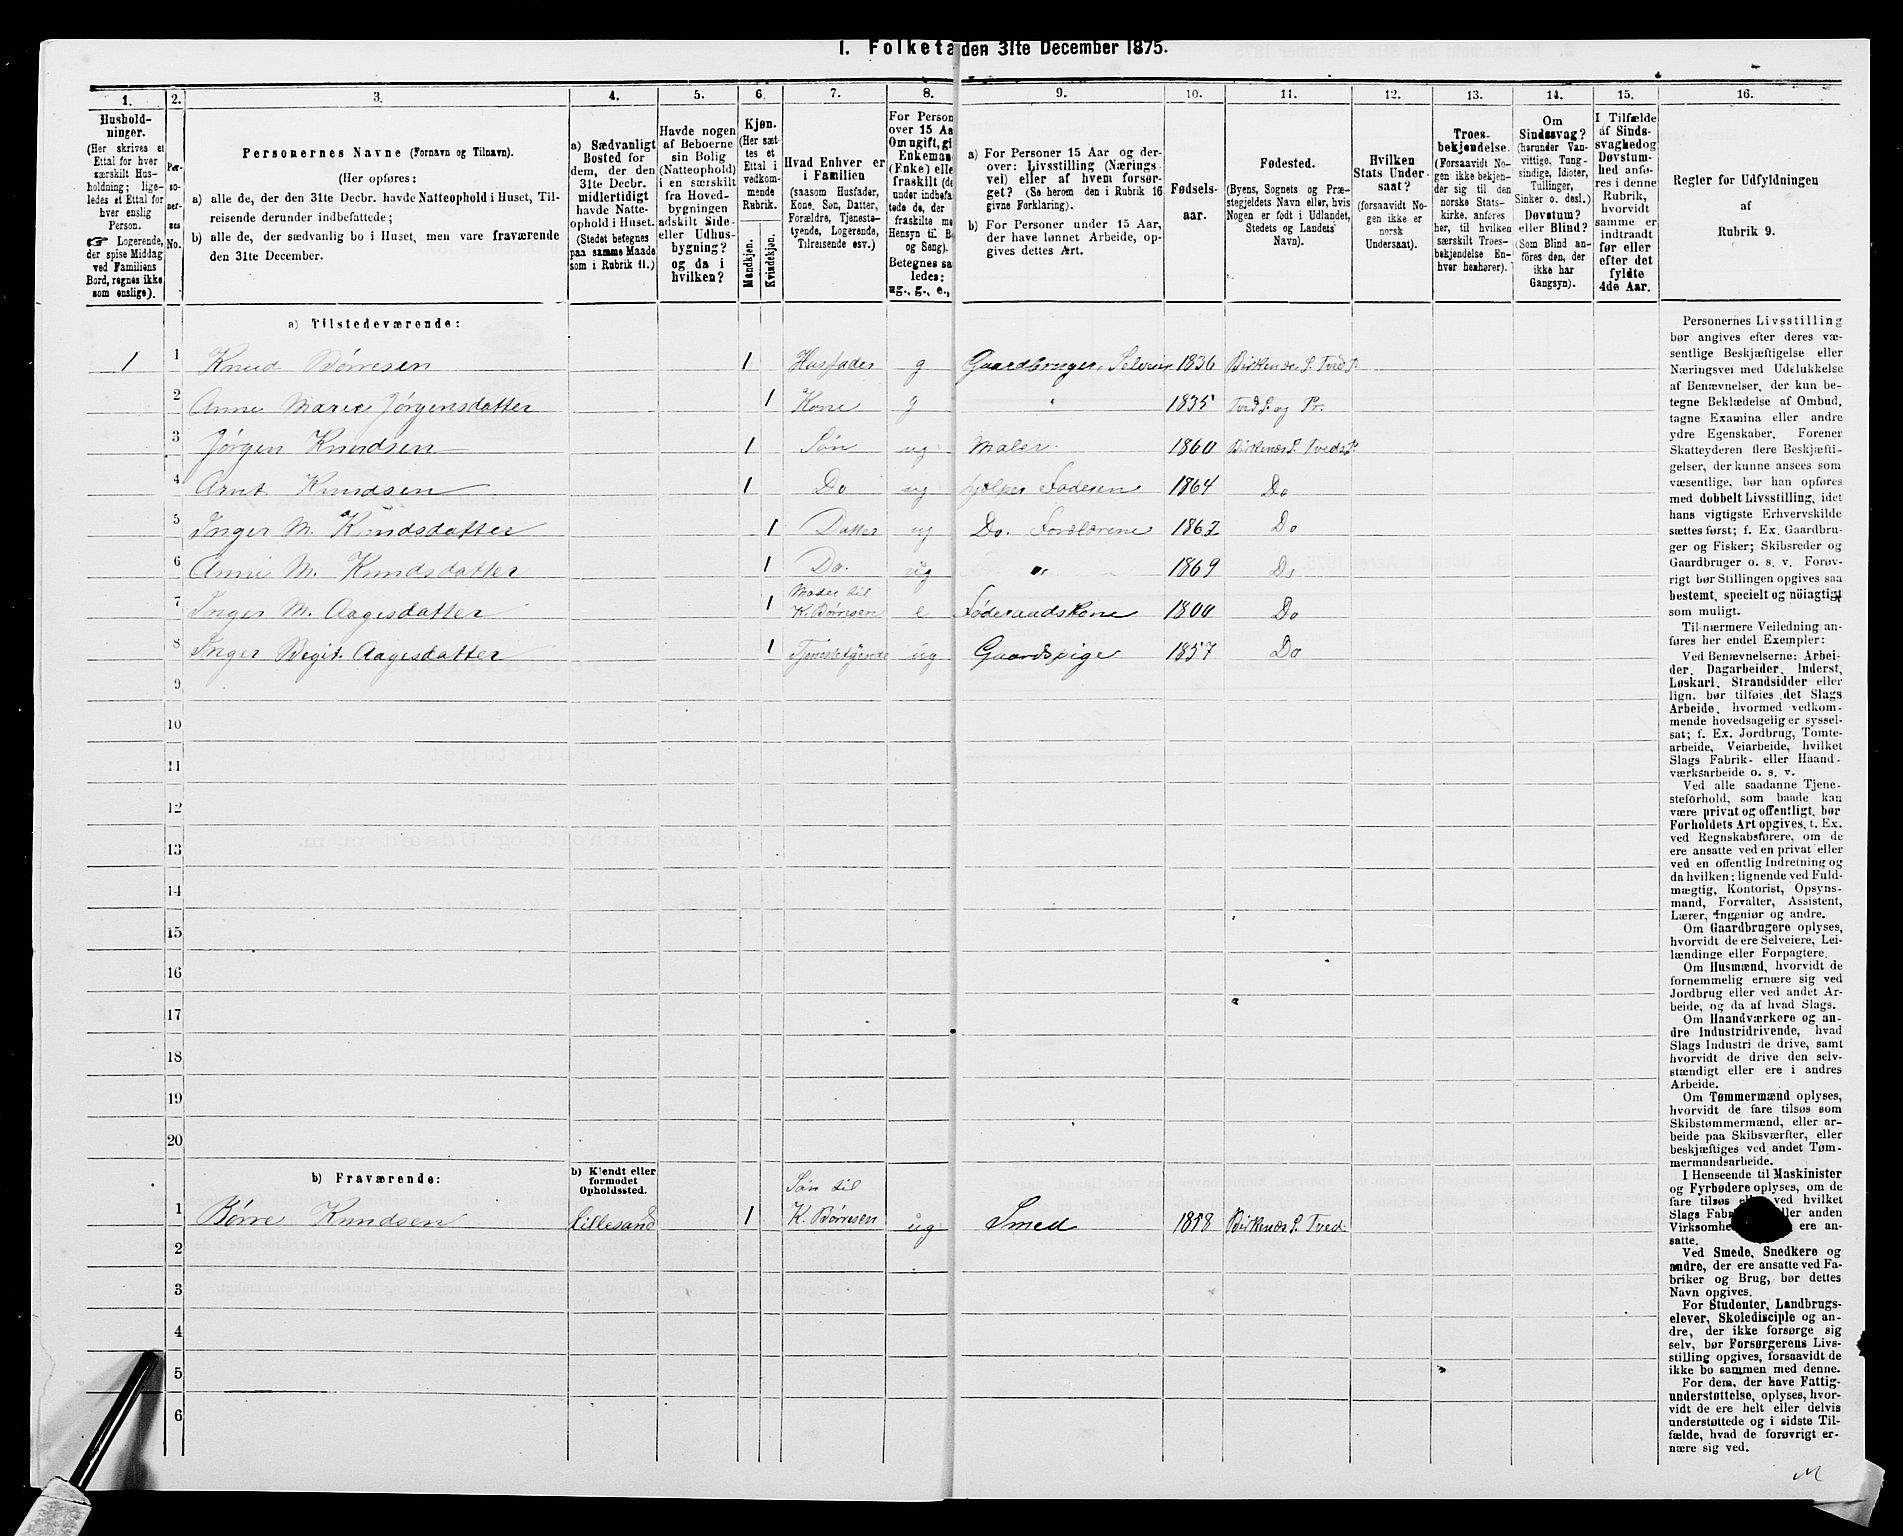 1. Folketa den 31te December 1875.
1. 2. 3. 4. 5. 6. 7. 8. 9. 10. 11. 12. 13. 14. 15. 16.
Hushold-
ninger.
(Her skrives et
Ettal for hver
særskilt Hus-
holdning; lige-
ledes et Ettal for
hver enslig
Person.
Logerende,
der spise Middag
ved Familiens
Bord, regnes ikke
som enslige).
Per-
so-
ner-
nes
No.
Personernes Navne (Fornavn og Tilnavn).
(Her opføres:
a) alle de, der den 31te Decbr. havde Natteophold i Huset, Til-
reisende derunder indbefattede;
b) alle de, der sædvanlig bo i Huset, men vare fraværende
den 31te December.
a) Sædvanligt
Bosted for
dem, der den
31te Decbr.
midlertidigt
havde Natte-
ophold i Huset.
(Stedet betegnes
paa samme Maade
som i Rubrik 11.)
Havde nogen
af Beboerne
sin Bolig
(Natteophold)
i en særskilt
fra Hoved-
bygningen
adskilt Side-
eller Udhus-
bygning?
og da i
hvilken?
Kjøn.
(Her sæt-
tes et
Ettal i
vedkom-
mende
Rubrik.
Mandkjøn.
Kvindekjøn.
Hvad Enhver er
i Familien
(saasom Husfader,
Kone, Søn, Datter,
Forældre, Tjeneste-
tyende, Logerende,
Tilreisende osv.)
For Person
over 15 Aa
Om ugift, gi
Enkeman
(Enke) elle
fraskilt (de
under indbef
tede de, der
fraskilte me
Hensyn til B
og Seng).
Betegnes sa
ledes:
ug., g., e.,
a) For Personer 15 Aar og der-
over: Livsstilling (Nærings
vei) eller af hvem forsør-
get? (Se herom den i Rubrik 16
givne Forklaring).
b) For Personer under 15 Aar,
der have lønnet Arbeide, op-
gives dettes Art.
Fødsels-
aar.
Fødested.
(Byens, Sognets og Præ-
stegjeldets Navn eller, hvis
Nogen er født i Udlandet,
Stedets og Landets
Navn).
Hvilken
Stats Under-
saat?
(forsaavidt No-
gen ikke er
norsk
Undersaat).
Troes-
bekjendelse.
(Forsaavidt No-
gen ikke bekjen-
der sig til den
norske Stats-
kirke, anføres
her, til hvilken
særskilt Troes-
bekjendelse En-
hver henhører).
Om
Sindssvag?
(herunder Van-
vittige, Tung-
sindige, Idioter,
Tullinger,
Sinker o. desl.)
Døvstum?
eller Blind?
(Som Blind an-
føres den, der
ikke har
Gangsyn).
I Tilfælde
af Sinds-
svaghed og
Døvstum-
hed anfø-
res i denne
Rubrik,
hvorvidt
samme er
indtraadt
før eller
efter det
fyldte
4de Aar.
Regler for Udfyldningen
af
Rubrik 9.
a) Tilstedeværende:
1 1 Knud Børresen 1 Husfader g Gaardbruger, Selveier 1836 Birkenæs S. Tved P.
2 Anne Marie Jørgensdatter 1 Kone g 1835 Tved S. og Pr.
3 Jørgen Knudsen 1 Søn ug Maler 1860 Birkenæs S. Tveds P.
4 Arnt Knudsen 1 Do ug hjælper Faderen 1864 Do
5 Inger M. Knudsdatter 1 Datter ug Do. Forældrene 1862 Do
6 Anne M. Knudsdatter 1 Do. ug 1869 Do
7 Inger M. Aagesdatter 1 Moder til K. Børresen e Føderaadskone 1800 Do
8 Inger Begit. Aagesdatter 1 Tjenestetyende ug Gaardspige 1857 Do
9
10
11
12
13
14
15
16
17
18
19
20
b) Fraværende:
b) Kjendt eller
formodet
Opholdssted.
1 Børre Knudsen Lillesand 1 Søn til K. Børresen ug Smed 1858 Birkenæs S. Tved
2
3
4
5
6
Personernes Livsstilling
bør angives efter deres væ-
sentlige Beskjæftigelse eller
Næringsvei med Udelukkelse
af Benævnelser, der kun be-
tegne Beklædelse af Ombud,
tagne Examina eller andre
ydre Egenskaber. Forener
Skatteyderen flere Beskjæfti-
gelser, der kunne ansees som
væsentlige, bør han opføres
med dobbelt Livsstilling, idet
hans vigtigste Erhvervskilde
sættes først; f. Ex. Gaardbru-
ger og Fisker; Skibsreder og
Gaardbruger o. s. v. Forøv-
rigt bør Stillingen opgives saa
bestemt, specielt og nøiagtigt
som muligt.
Til nærmere Veiledning an-
føres her endel Exempler:
Ved Benævnelserne: Arbei-
der, Dagarbeider, Inderst,
Løskarl, Strandsidder eller
lign. bør tilføies det Slags
Arbeide, hvormed vedkom-
mende hovedsagelig er syssel-
sat; f. Ex. Jordbrug, Tomte-
arbeide, Veiarbeide, hvilket
Slags Fabrik- eller Haand-
værksarbeide o. s. v.
Ved alle saadanne Tjene-
steforhold, som baade kan
være privat og offentligt, bør
Forholdets Art opgives, t. Ex.
ved Regnskabsførere, om de
ere ansatte ved en privat eller
ved en offentlig Indretning og
da hvilken; lignende ved Fuld-
mægtig, Kontorist, Opsyns-
mand, Forvalter, Assistent,
Lærer, Ingeniør og andre.
Om Gaardbrugere oplyses,
hvorvidt de ere Selveiere, Lei-
lændinge eller Forpagtere.
Om Husmænd, hvorvidt de
fornemmelig ernære sig ved
Jordbrug eller ved andet Ar-
beide, og da af hvad Slags.
Om Haandværkere og an-
dre Industridrivende, hvad
Slags Industri de drive, samt
hvorvidt de drive den selv-
stændigt eller ere i andres
Arbeide.
Om Tømmermænd oplyses,
hvorvidt de fare tilsøs som
Skibstømmermænd, eller ar-
beide paa Skibsværfter, eller
beskjæftiges ved andet Tøm-
mermandsarbeide.
I Henseende til Maskinister
og Fyrbødere oplyses, om de
fare tilsøs ved hvilket
Slags Fab ller anden
Virksomhe ere an-
satte.
Ved Smede, Snedkere og
andre, der ere ansatte ved Fa-
briker og Brug, bør dettes
Navn opgives.
For Studenter, Landbrugs-
elever, Skoledisciple og an-
dre, der ikke forsørge sig
selv, bør Forsørgerens Livs-
stilling opgives, forsaavidt de
ikke bo sammen med denne.
For dem, der have Fattig-
understøttelse, oplyses, hvor-
vidt de ere helt eller delvis
understøttede og i sidste Til-
fælde, hvad de forøvrigt er-
nære sig ved.